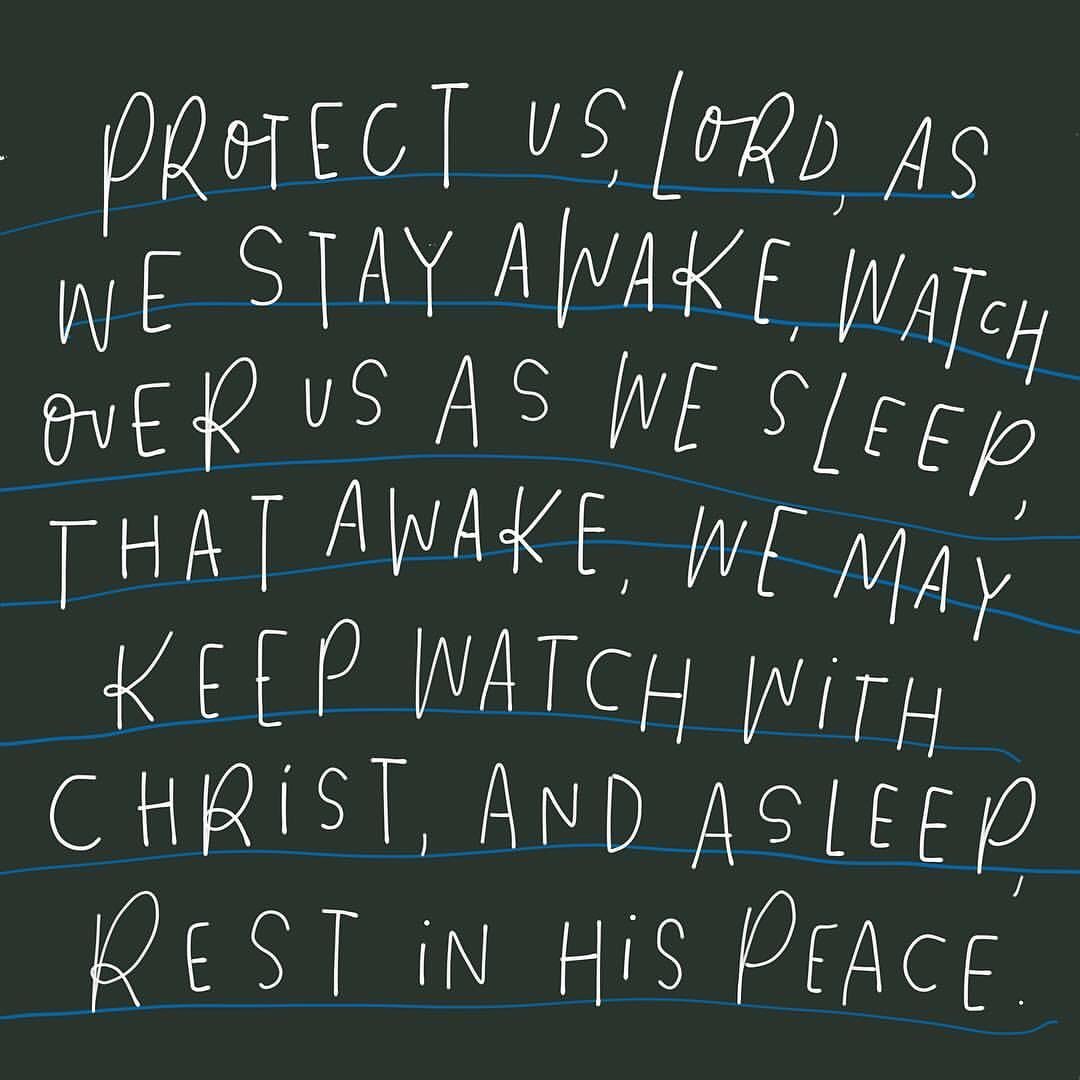 PROTECT US, LORD, AS
WE STAY AWAKE, WATCH
OVER US AS WE SLEEP,
THAT AWAKE, WE MAY
KEEP WATCH WITH
CHRIST, AND ASLEEP,
REST IN HIS PEACE.